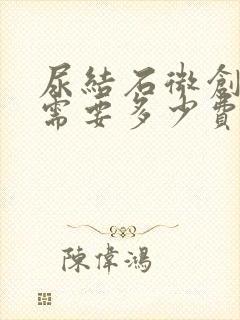 尿結石微創
需要多少費
陳偉鴻